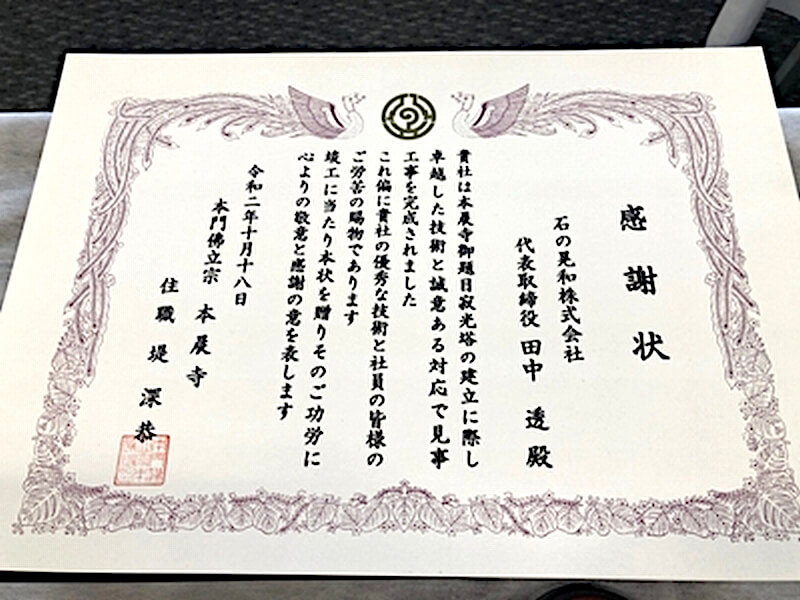 感謝状
石の晃和株式会社
代表取締役 田中 透 殿
貴社は本展寺御題目寂光塔の建立に際し
卓越した技術と誠意ある対応で見事
工事を完成されました
これ偏に貴社の優秀な技術と社員の皆様の
ご労苦の賜物であります
竣工に当たり本状を贈りそのご功労に
心よりの敬意と感謝の意を表します
令和二年十月十八日
本門佛立宗 本展寺
住職 堤 深恭